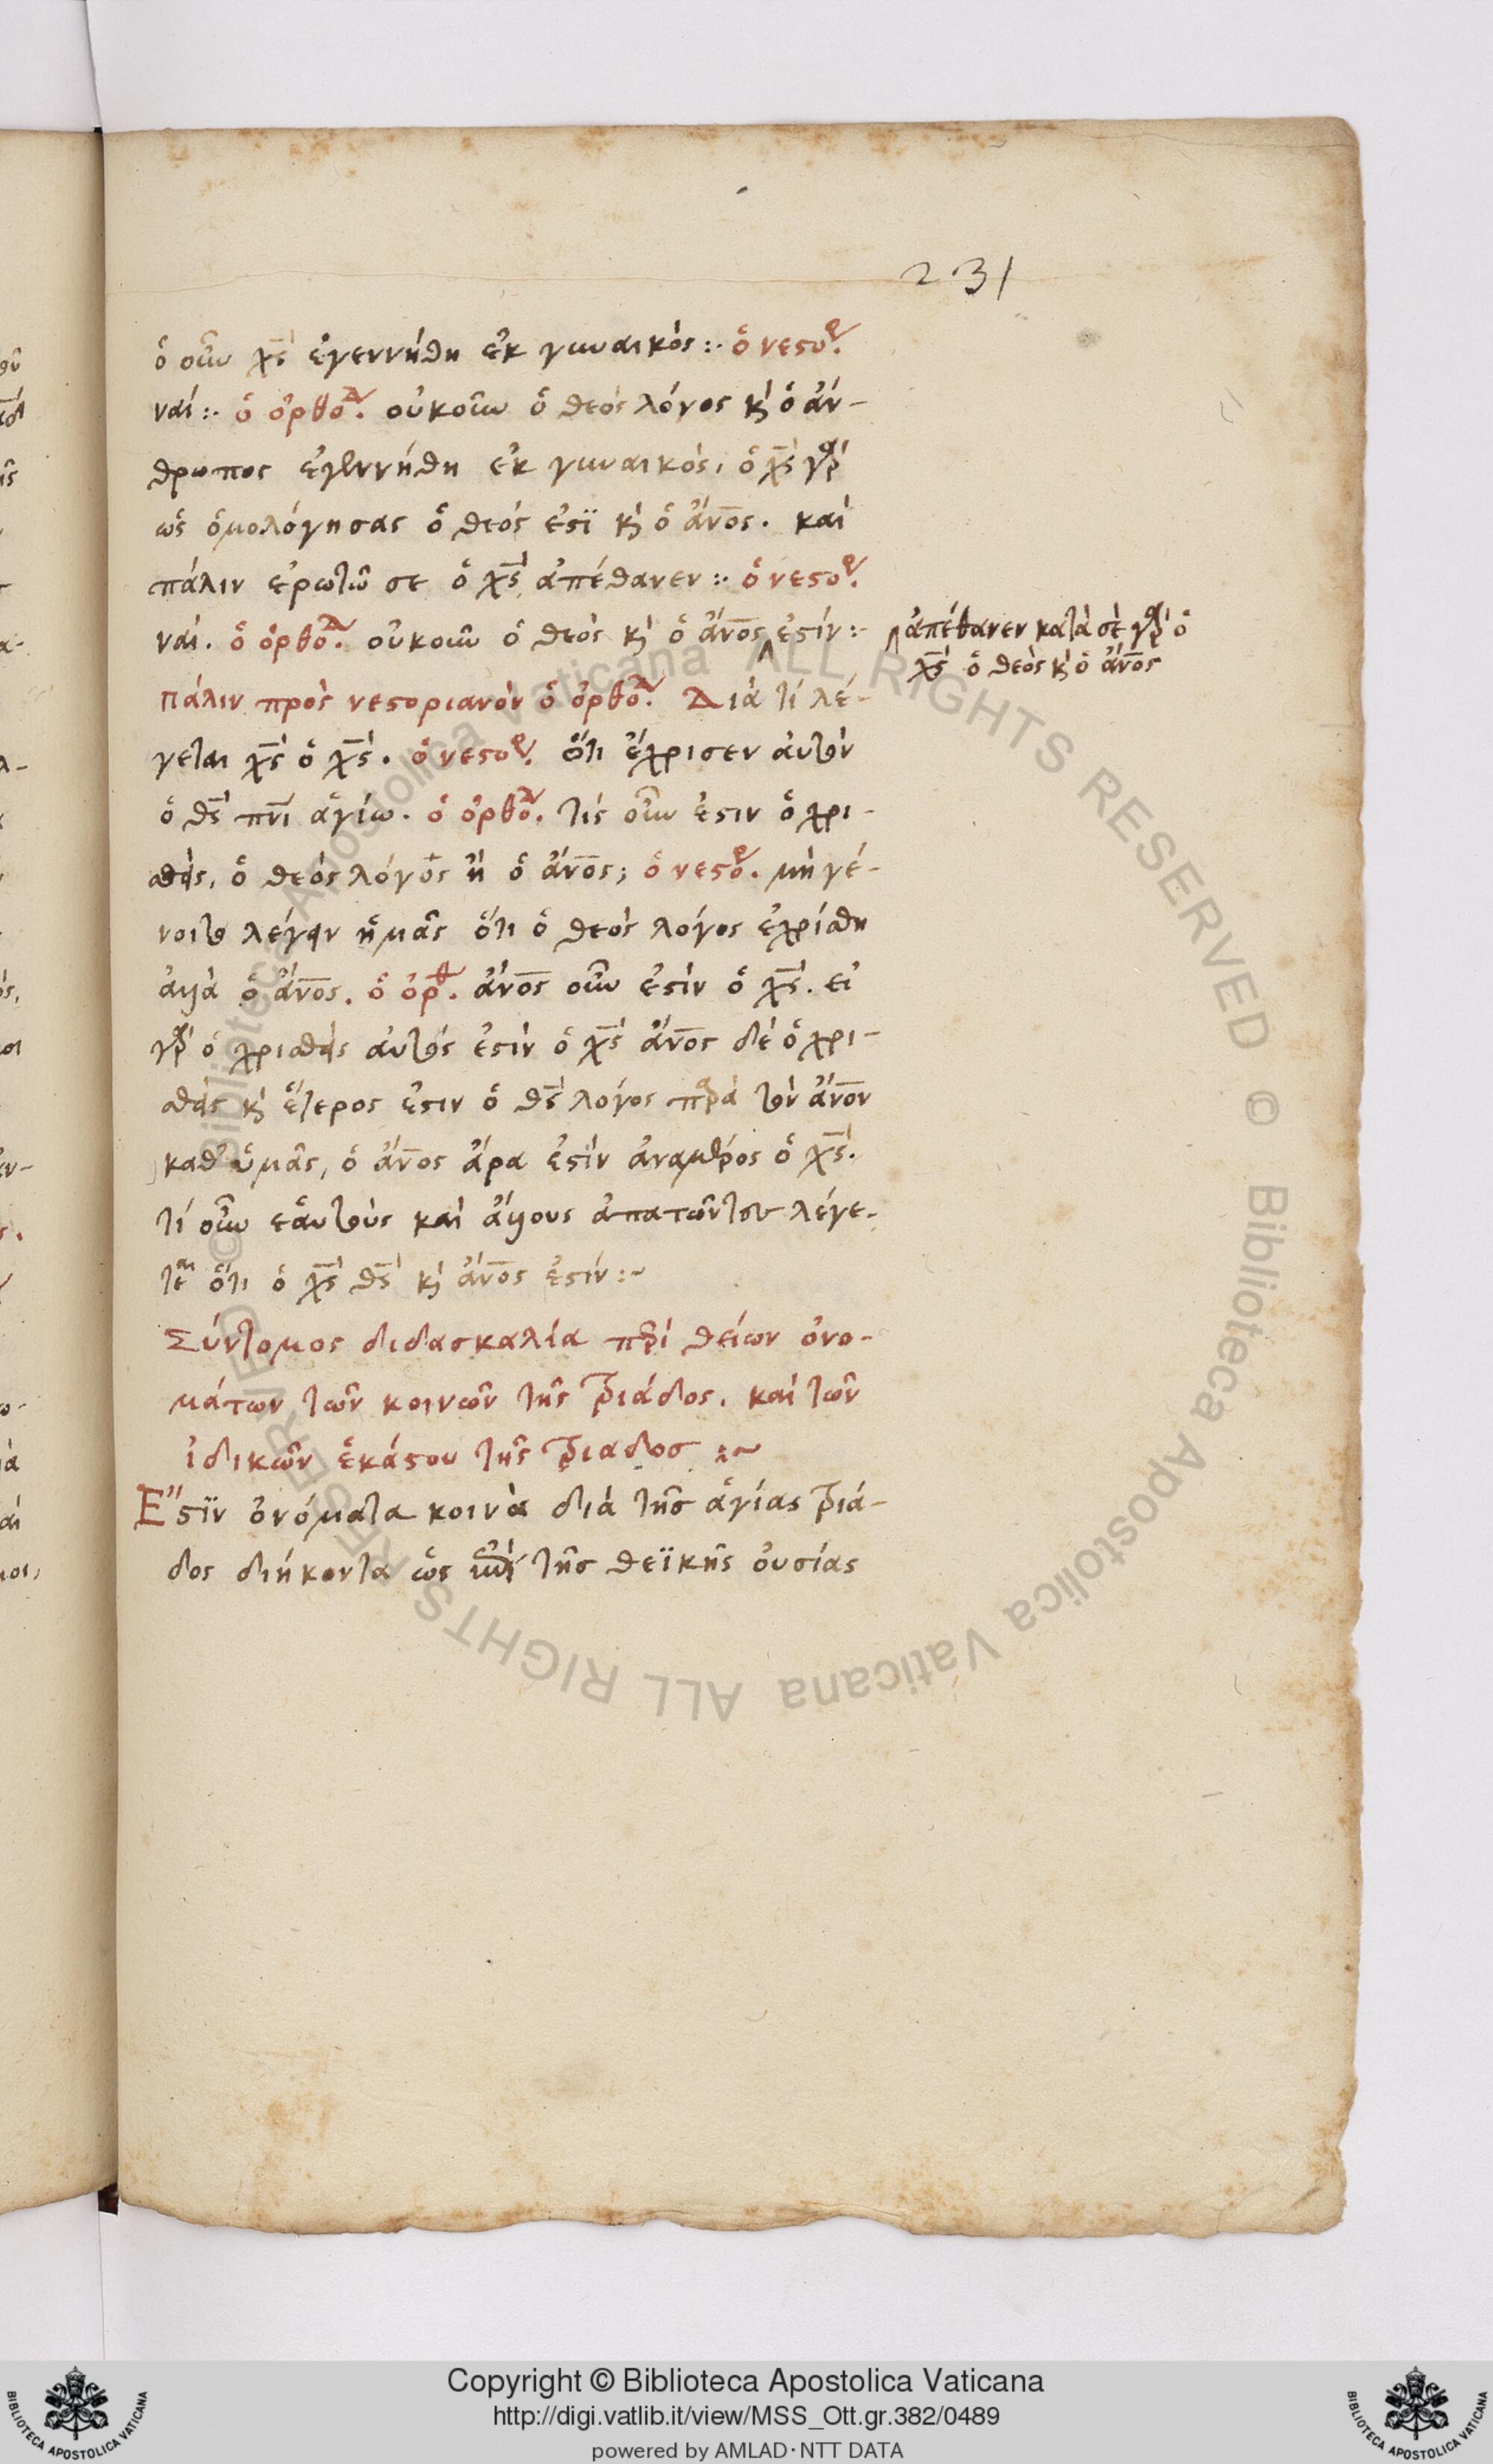 231
ὁ οὖν χς ἐγεννήθη ἐκ γυναικός :· ὁ νεστορ.
ναί :· ὁ ὀρθοδ. οὐκοῦν ὁ θεὸς λόγος κὶ ὁ ἄν-
θρωπος ἐγεννήθη ἐκ γυναικός, ὁ χς γὰρ
ὡς ὁμολόγησας ὁ θεός ἐστϊ κὶ ὁ ἄνος. καὶ
πάλιν ἐρωτῶ σε ὁ χς ἀπέθανεν :· ὁ νεστορ.
ναί. ὁ ὀρθοδ. οὐκοῦν ὁ θεὸς κὶ ὁ ἄνος ἐστίν :·
ἀπέθανεν κατὰ σὲ γὰρ ὁ
χς ὁ θεὸς κὶ ὁ ἄνος
πάλιν πρὸς νεστοριανὸν ὁ ὀρθοδ. Διὰ τί λέ-
γεται χς ὁ χς. ὁ νεστορ. ὅτι ἔχρισεν αὐτὸν
ὁ θς πνι ἁγίω. ὁ ὀρθοδ. τίς οὖν ἐστιν ὁ χρι-
σθείς, ὁ θεὸς λόγος ἢ ὁ ἄνος; ὁ νεστορ. μὴ γέ-
νοιτο λέγειν ἡμᾶς ὅτι ὁ θεὸς λόγος ἐχρίσθη
ἀλλὰ ὁ ἄνος. ὁ ὀρθ. ἄνος οὖν ἐστὶν ὁ χς. εἰ
γὰρ ὁ χρισθεὶς αὐτός ἐστιν ὁ χς ἄνος δὲ ὁ χρι-
σθεὶς κὶ ἕτερος ἐστιν ὁ θς λόγος παρὰ τὸν ἄνον
καθ' ὑμᾶς, ὁ ἄνος ἄρα ἐστὶν ὁ χς.
τί οὖν ἑαυτοὺς καὶ ἄλλους ἀπατῶντες λέγε-
ται ὅτι ὁ χς θς κὶ ἄνος ἐστίν :~
Σύντομος διδασκαλία περὶ θείων ὀνο-
μάτων τῶν κοινῶν τῆς τριάδος. καὶ τῶν
ἰδικῶν ἑκάστου τῆς τριαδοσ :~
Ἔστϊν ὀνόματα κοινὰ διὰ τῆσ ἁγίας τριά-
δος διήκοντα ὡς τῆσ θεϊκῆς οὐσίας
Copyright © Biblioteca Apostolica Vaticana
http://digi.vatlib.it/view/MSS_Ott.gr.382/0489
powered by AMLAD·NTT DATA